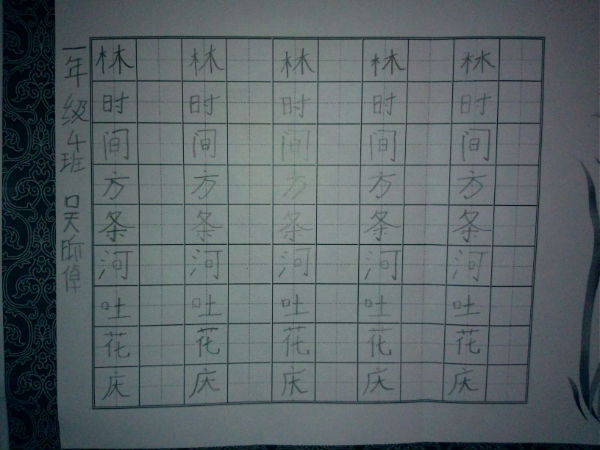 一年级4班 吴
林 林 林 林 林
时 时 时 时 时
间 间 间 间 间
方 方 方 方 方
条 条 条 条 条
河 河 河 河 河
吐 吐 吐 吐 吐
花 花 花 花 花
庆 庆 庆 庆 庆